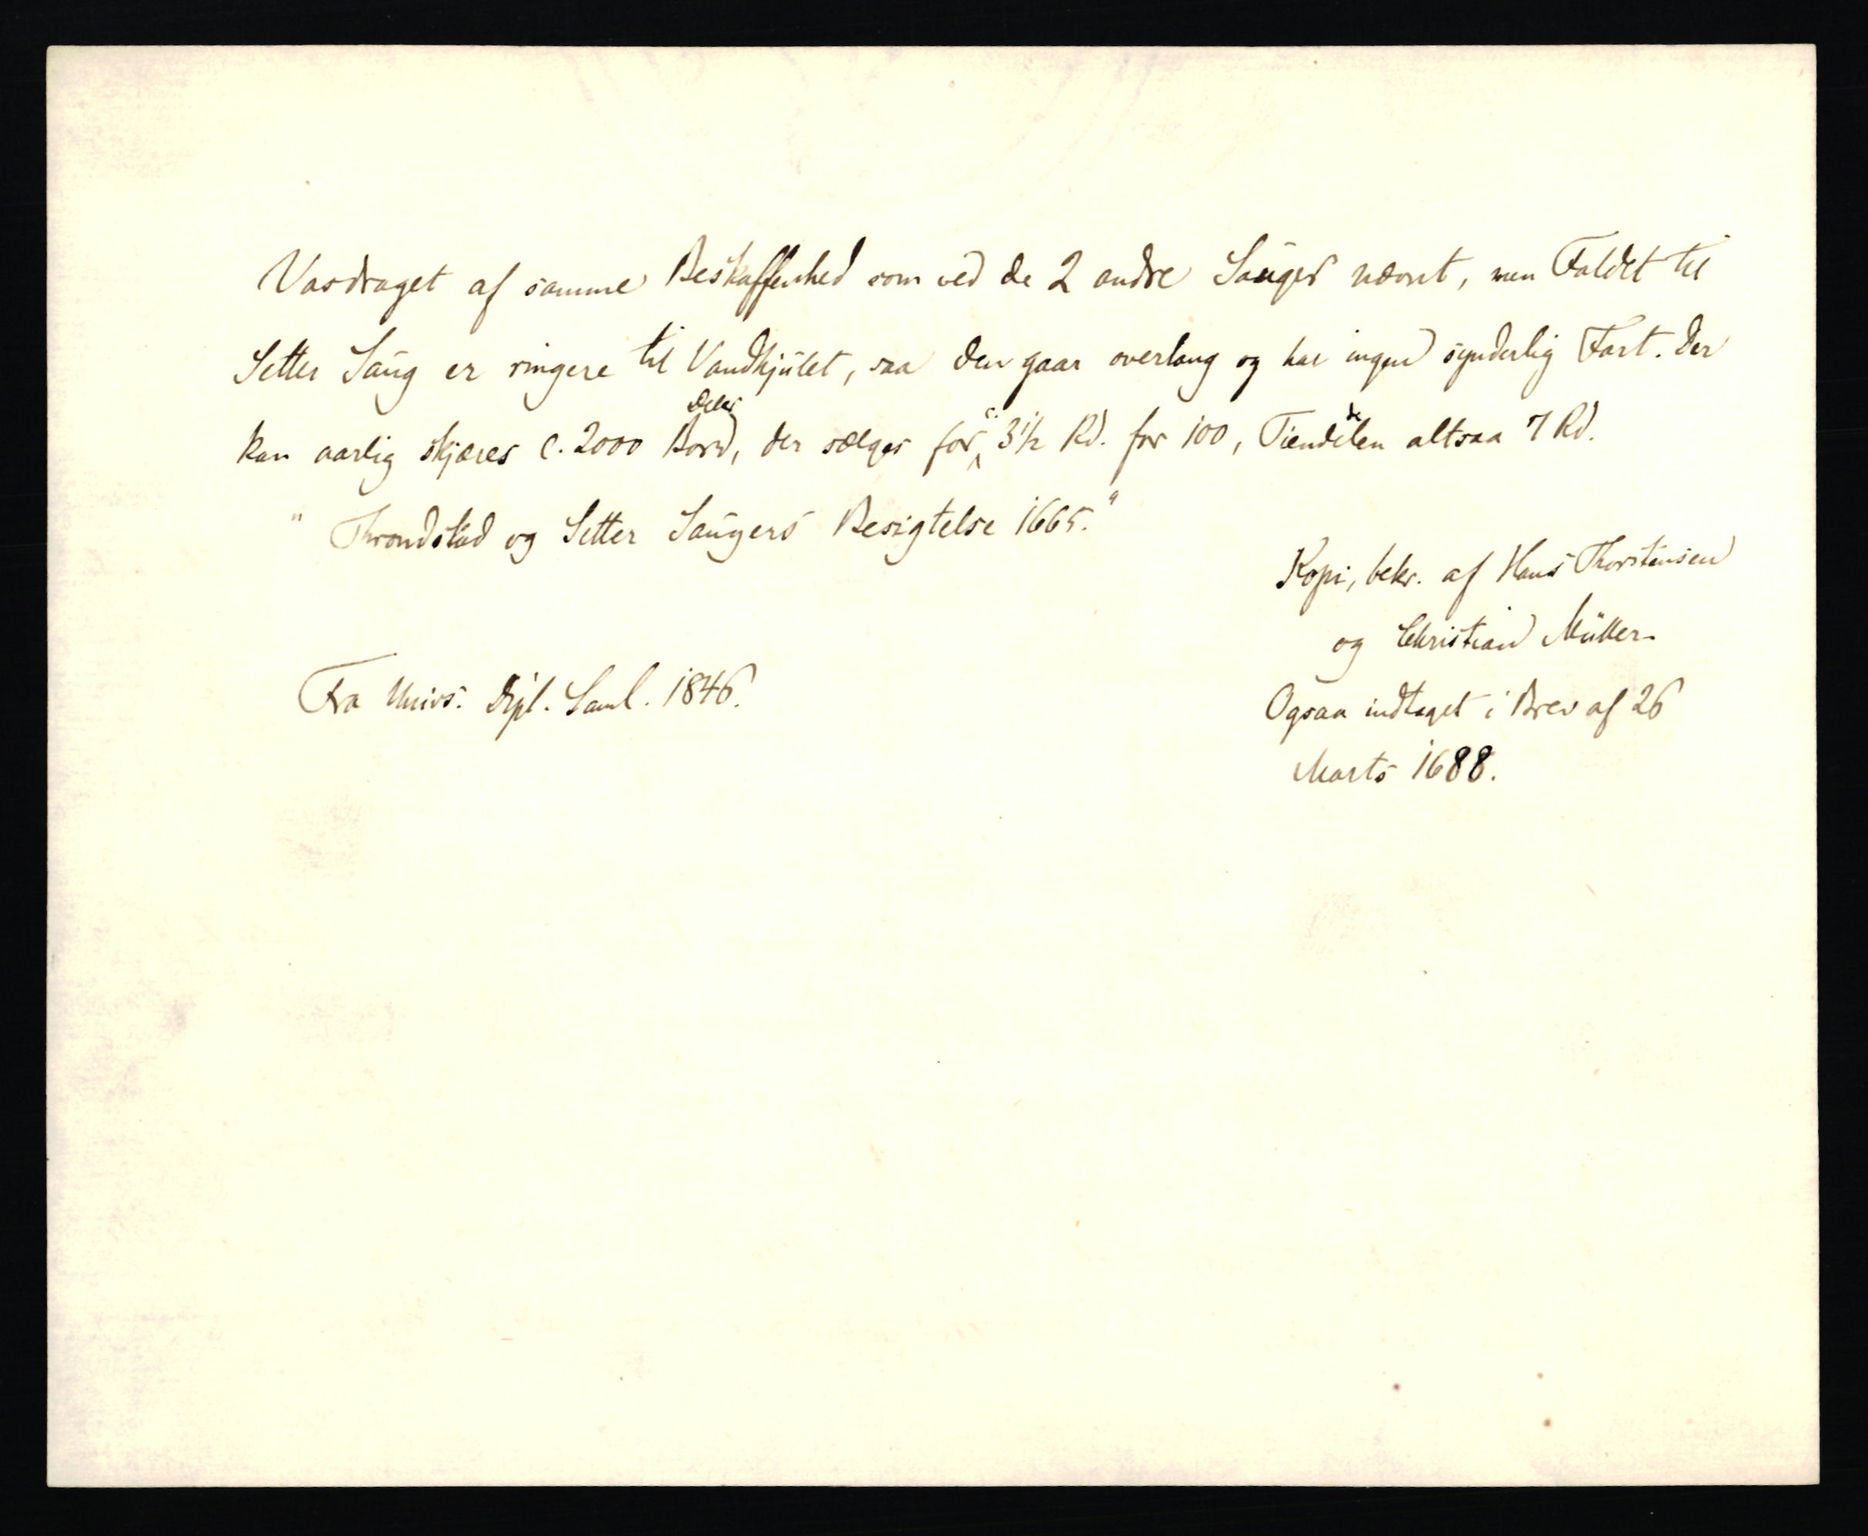 Vasdraget af samme Beskaffenhed som ved de 2 andre Sauger nævnt, men Faldet til
Setter Saug er ringere til Vandhjulet, saa den gaar overlang og har ingen synderlig Fart. Der
kan aarlig skjæres c. 2000 Bord, der sælges for c. 3½ Rd. for 100, Tiendedelen altsaa 7 Rd.
"Throndstad og Setter Saugers Besigtelse 1665."
Kopi, bekr. af Hans Thorstensen
og Christian Müller.
Ogsaa indtaget i Brev af 26
Marts 1688.
Fra Univs. Dipl. Saml. 1846.